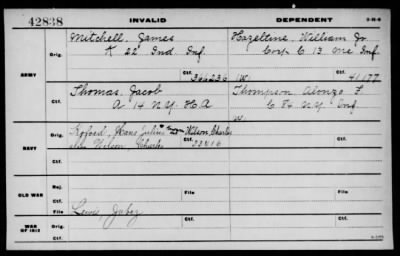 42838 INVALID DEPENDENT 3-R-4
Mitchell, James Hazeltine, William Jr.
Orig. K 22" Ind. Inf. Corp C 13 Me Inf
ARMY Ctf. 366236 W. Ctf. 41177
Thomas, Jacob Thompson, Alonzo F.
Orig. A 14 N.Y. H A C 84 N.Y. Inf
Ctf. W.
Orig. Hans Julius Wilson, Charles
NAVY Wilson, Charles 23416
Ctf.
OLD WAR Rej. File File
Ctf. Ctf.
File Lewis, Jabez
WAR OF 1812 Orig. Orig.
Ctf. Ctf.